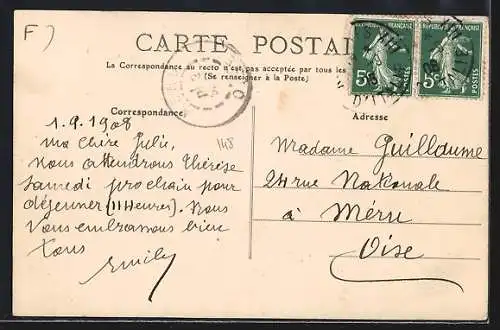 F)
CARTE POSTALE
La Correspondance au recto n'est pas acceptée par tous les
(Se renseigner à la Poste)
Correspondance
Adresse
1.9.1908
ma chère Julie,
Nous attendrons Thérèse
samedi prochain pour
déjeuner (11 Heures). Nous
vous embrassons bien
tous
Emily
148
Madame Guillaume
24 rue Nationale
à Méru
Oise
REPUBLIQUE FRANÇAISE
5c
POSTES
REPUBLIQUE FRANÇAISE
5c
POSTES